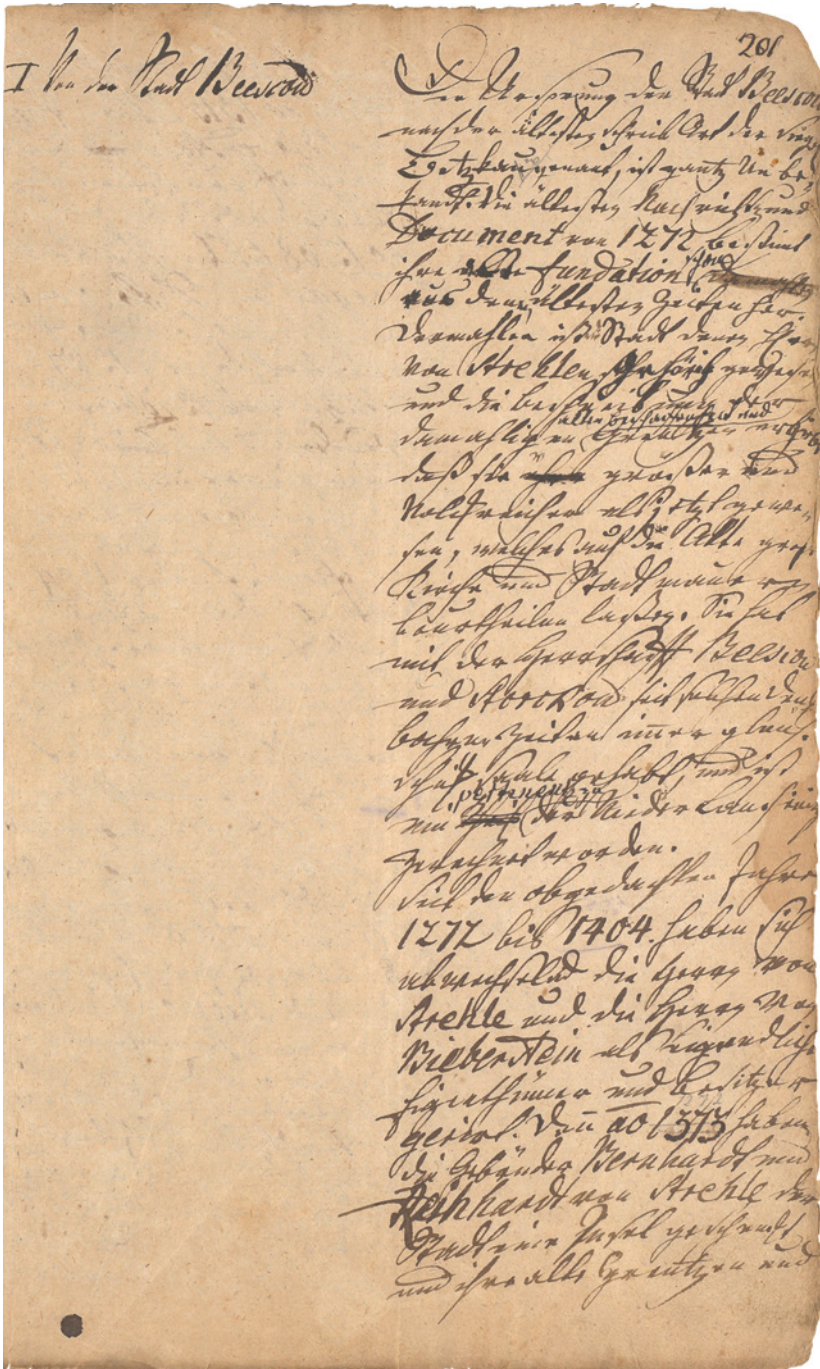 201
I Von der Stadt Beescow
Der Ursprung der Stadt Beescow
nach der ältesten Schreib Art der
genant, ist gantz Unbe-
kandt. Die ältesten Nachrichten und
Document von 1272 bestimt
ihre alte Fundation schon
aus den ältesten Zeiten her.
Dermahlen ist die Stadt denen Herrn
von Strehlen gehörig gewesen
und die beschreibung der
alte beschaffenheit und
damahligen Grentzen
daß sie größer und
Volckreicher als jetzt gewe-
sen, welches auch die Alte große
Kirche und Stadtmauern
beurtheilen laßen. Sie hat
mit der Herrschafft Beescow
und Storckow seit
Zeiten immer gleiche
Schicksaale gehabt, und ist
pertinentz
ein der Niederlausitz
gerechnet worden.
Seit den obgedachten Jahre
1272 bis 1404. haben sich
abwechselnd die Herrn von
Strehle und die Herrn von
Bieberstein als
Eigenthümer und Besitzer
geriret. Denn ao 1373 haben
die Gebrüder Bernhardt und
Reinhardt von Strehle der
Stadt eine Insel geschenckt
und ihre alte Grentzen und